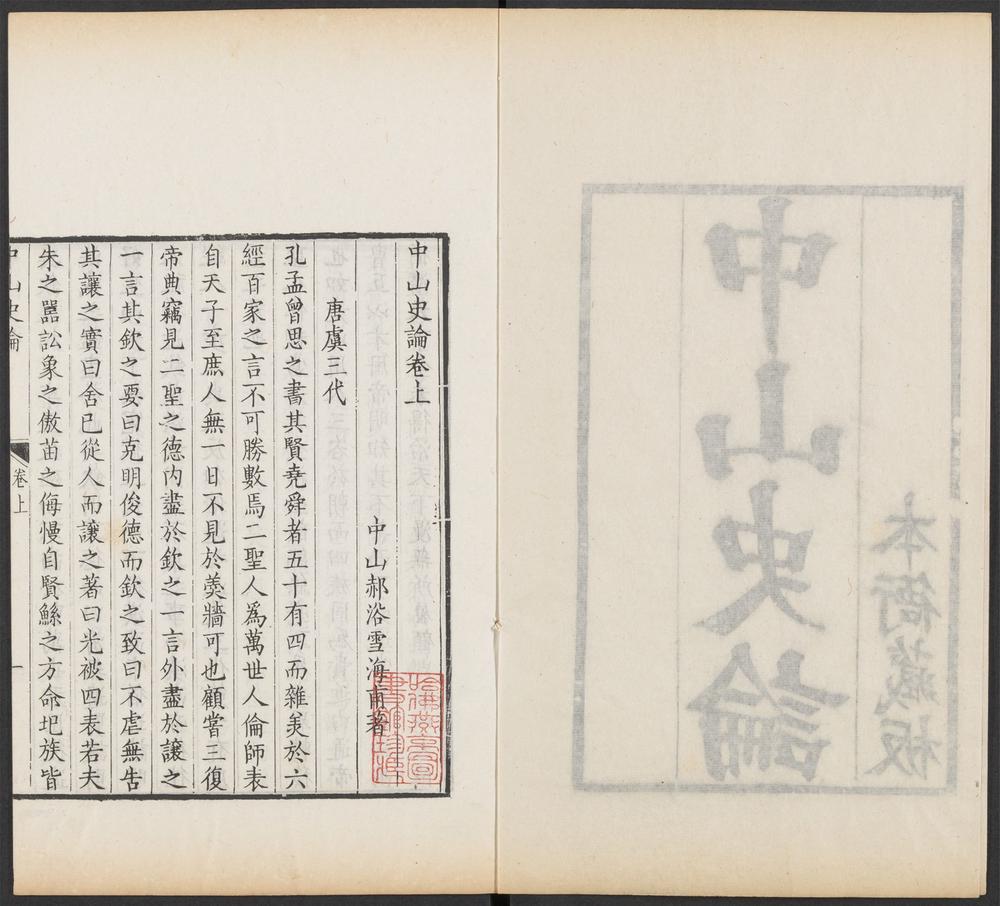 中山史論
本衙藏板
中山史論卷上
中山郝浴雪海甫著
唐虞三代
孔孟曾思之書其賢堯舜者五十有四而雜美於六
經百家之言不可勝數焉二聖人爲萬世人倫師表
自天子至庶人無一日不見於羹牆可也顧嘗三復
帝典竊見二聖之德內盡於欽之一言外盡於讓之
一言其欽之要曰克明俊德而欽之致曰不虐無告
其讓之實曰舍已從人而讓之著曰光被四表若夫
朱之嚚訟象之傲苗之侮慢自賢鯀之方命圮族皆
中山史論
卷上
一